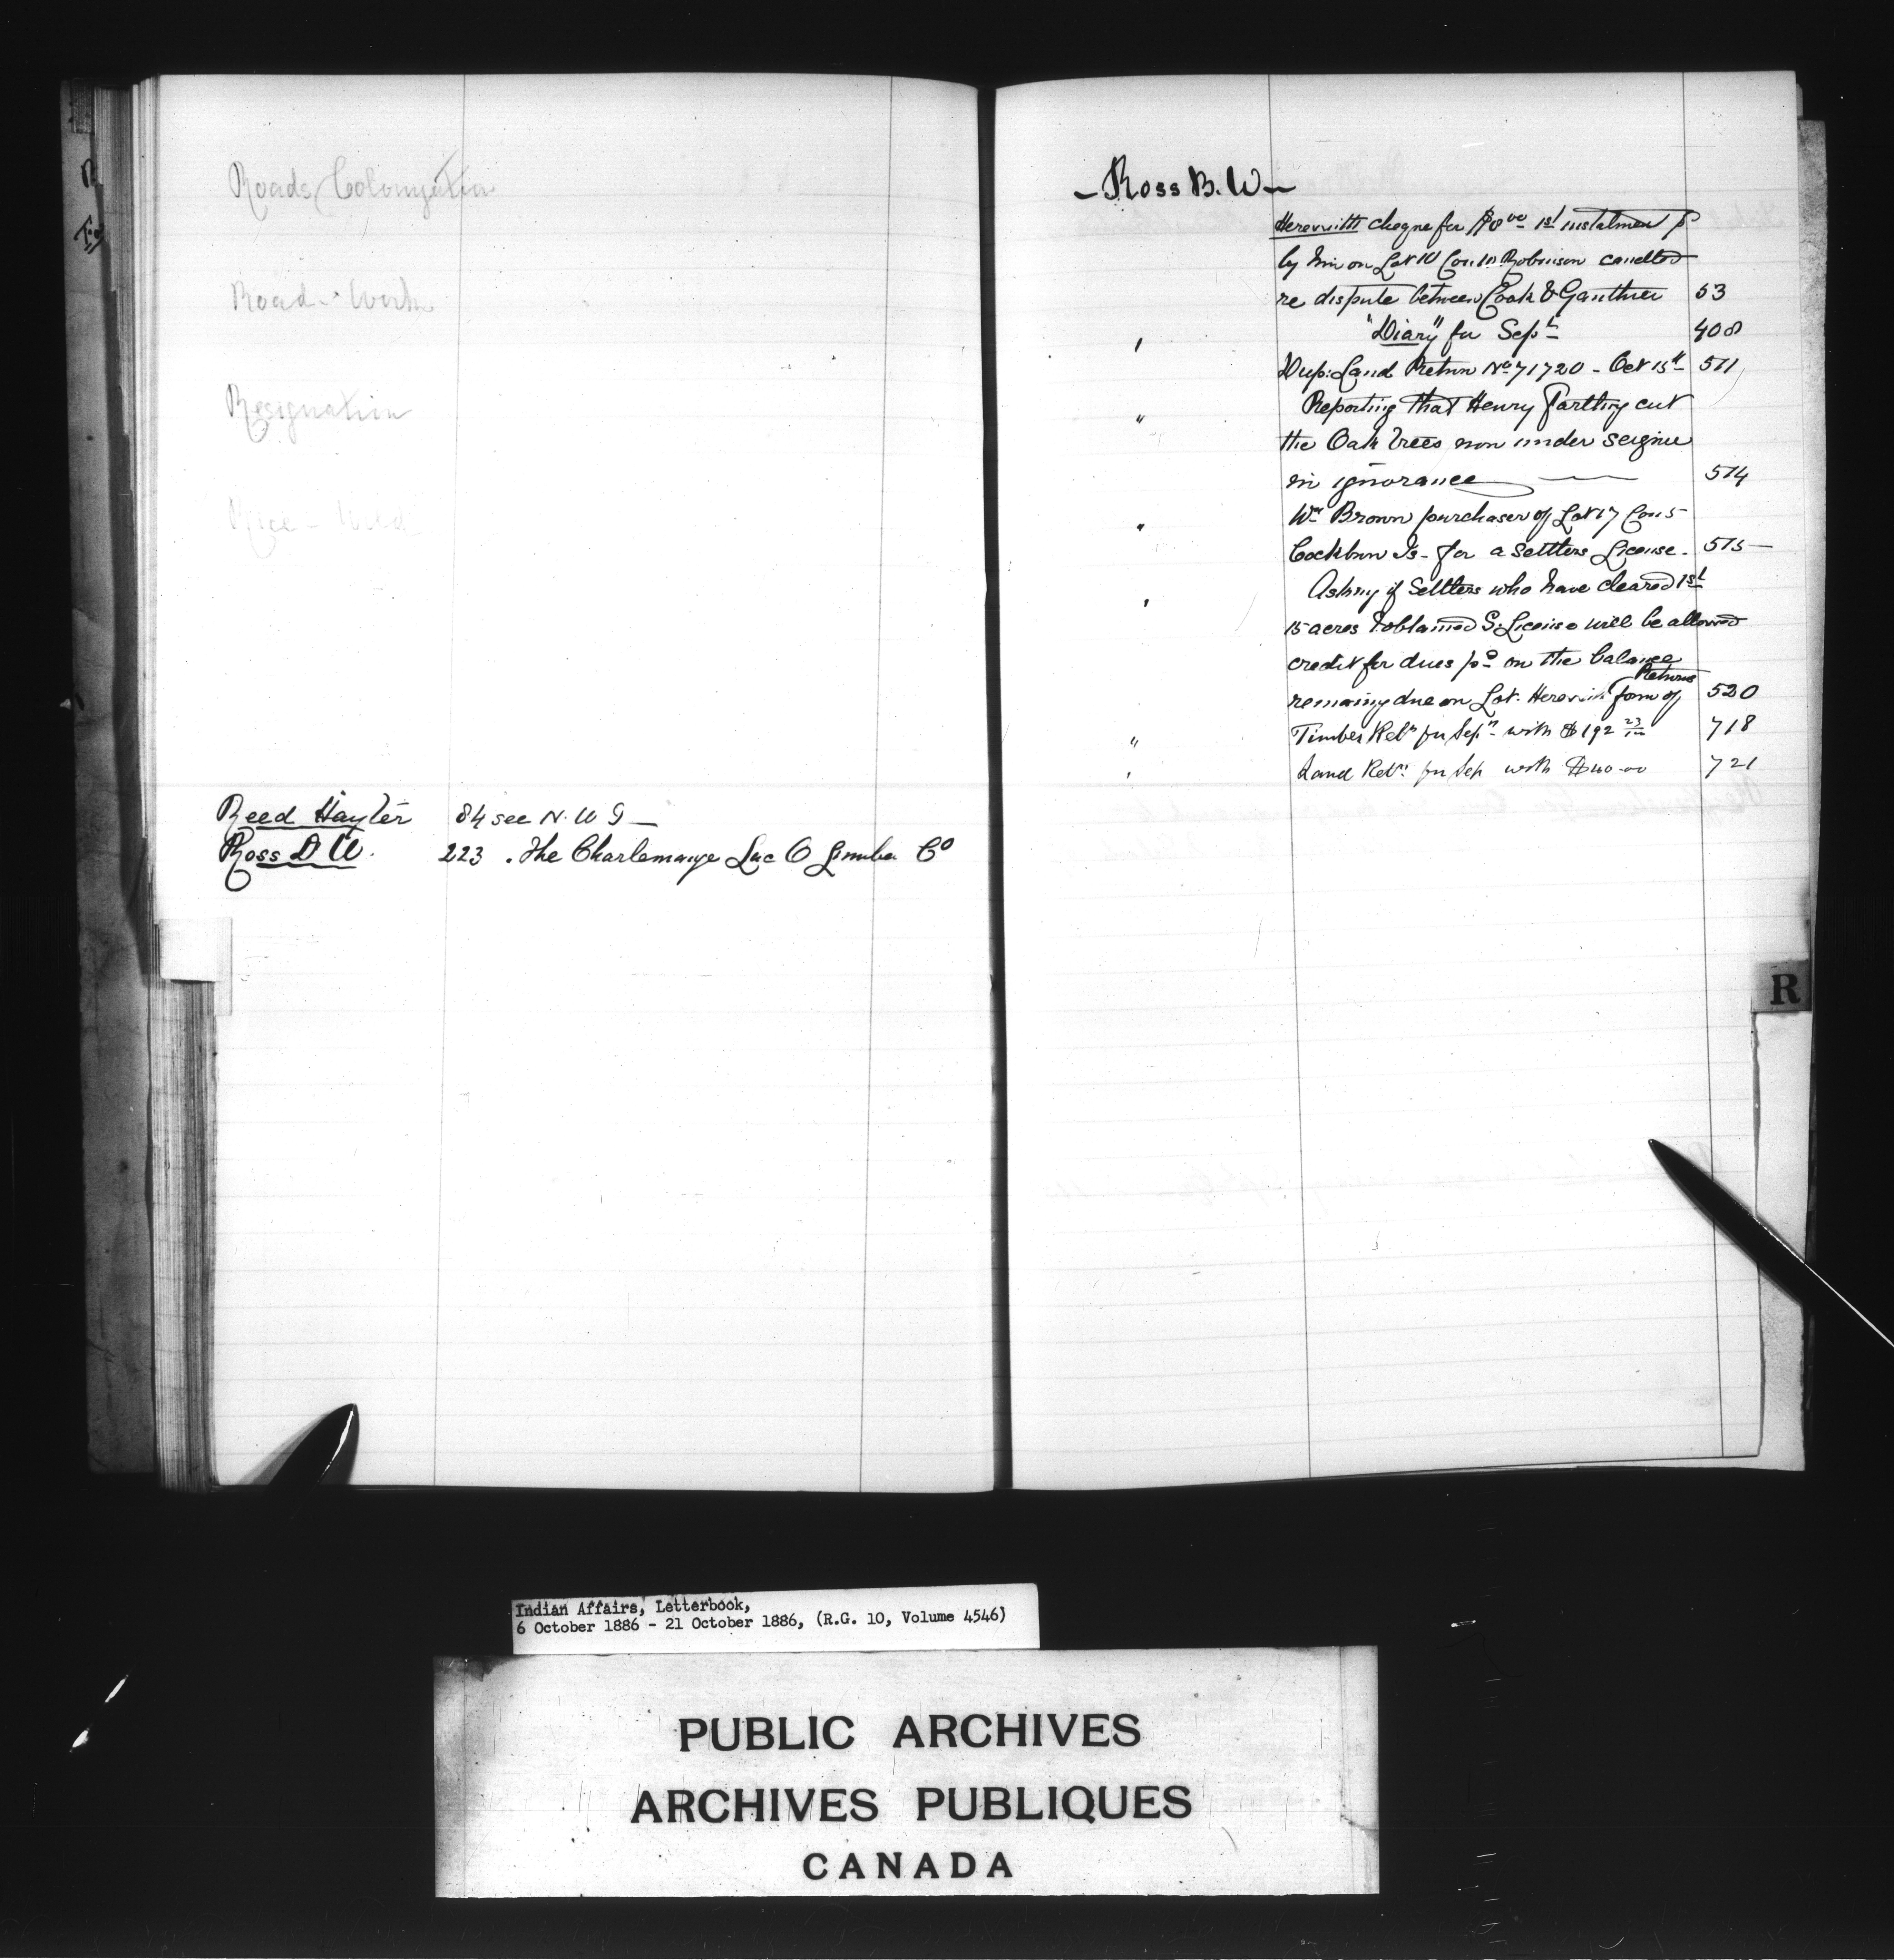 Roads Colonization
Road - Work
Resignation
Rice - Wild
Reed Hayter 84 see N. W G —
Ross D W. 223 . The Charlemange Lac O Lumber Co
— Ross B. W —
Herewith cheque for $8 00 1st instalment p
by him on Lot 10 Con 10 Robinson cancelled
re dispute between Cook & Gauthier 53
' "Diary" for Sept 408
Dup: Land Return No 71720 - Oct 15th 511
" Reporting that Henry Farthing cut
the Oak trees now under seizure
in ignorance — 514
" Wm Brown purchaser of Lot 17 Con 5
Cockburn Is - for a settlers License - 515 —
' Asking if Settlers who have cleared 1st
15 acres & obtained S. License will be allowed
credit for dues pd on the balance
Returns
remaing due on Lot. Herewith form of 520
" Timber Retn for Sepn - with $192 23 718
' Land Retn for Sep with $40-00 721
R
Indian Affairs, Letterbook,
6 October 1886 - 21 October 1886, (R.G. 10, Volume 4546)
PUBLIC ARCHIVES
ARCHIVES PUBLIQUES
CANADA